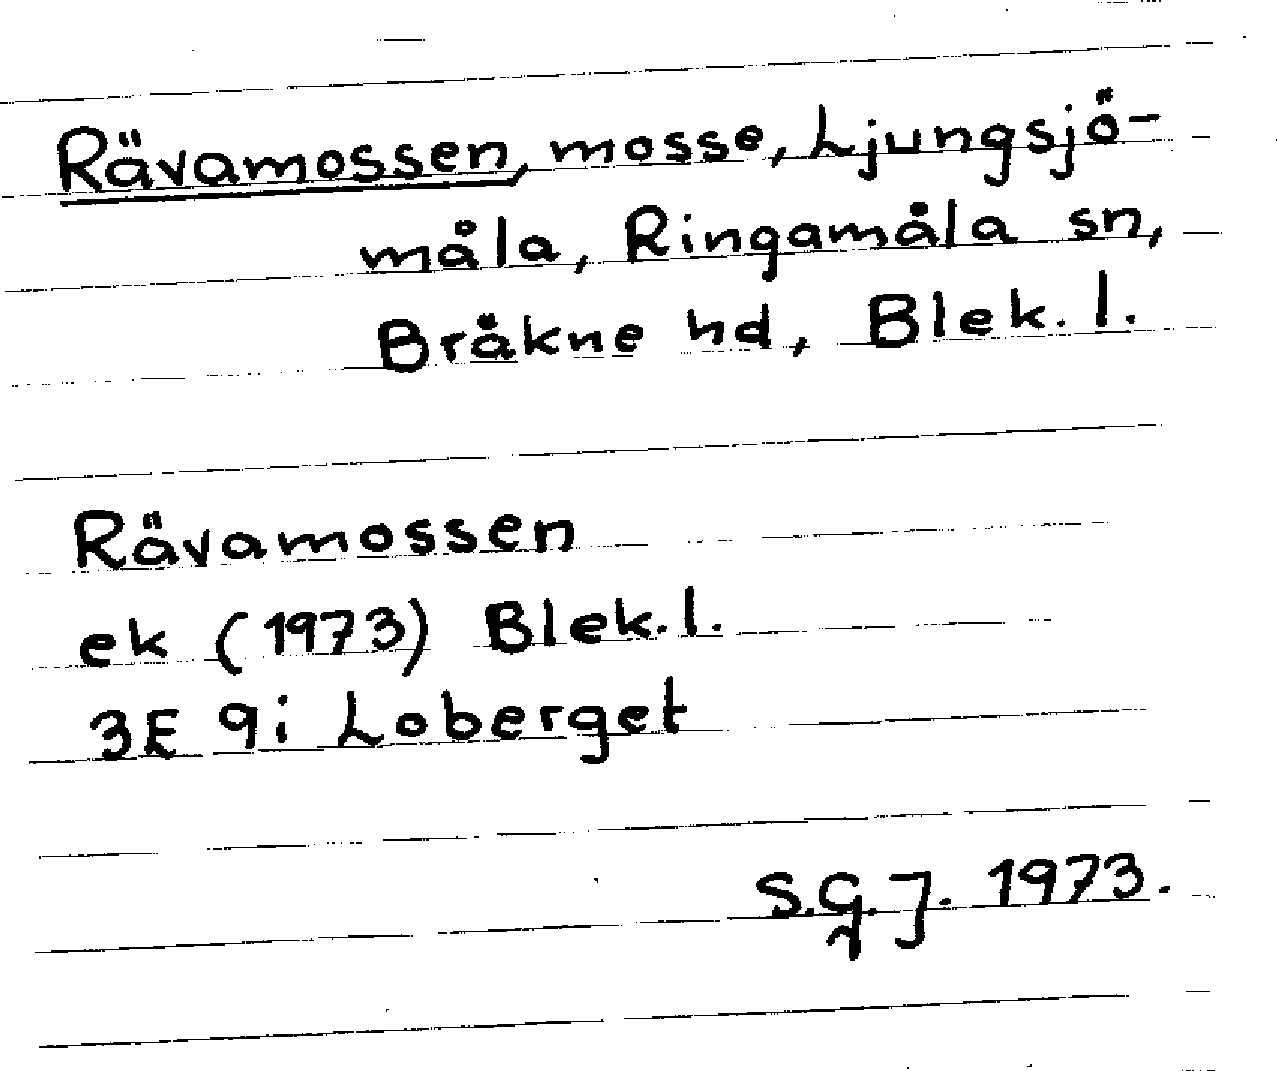 Rävamossen, mosse, Ljungsjö-
måla, Ringamåla sn,
Bråkne hd, Blek. l.
Rävamossen
ek (1973) Blek. l.
3E 9i Loberget
S.G.J. 1973.